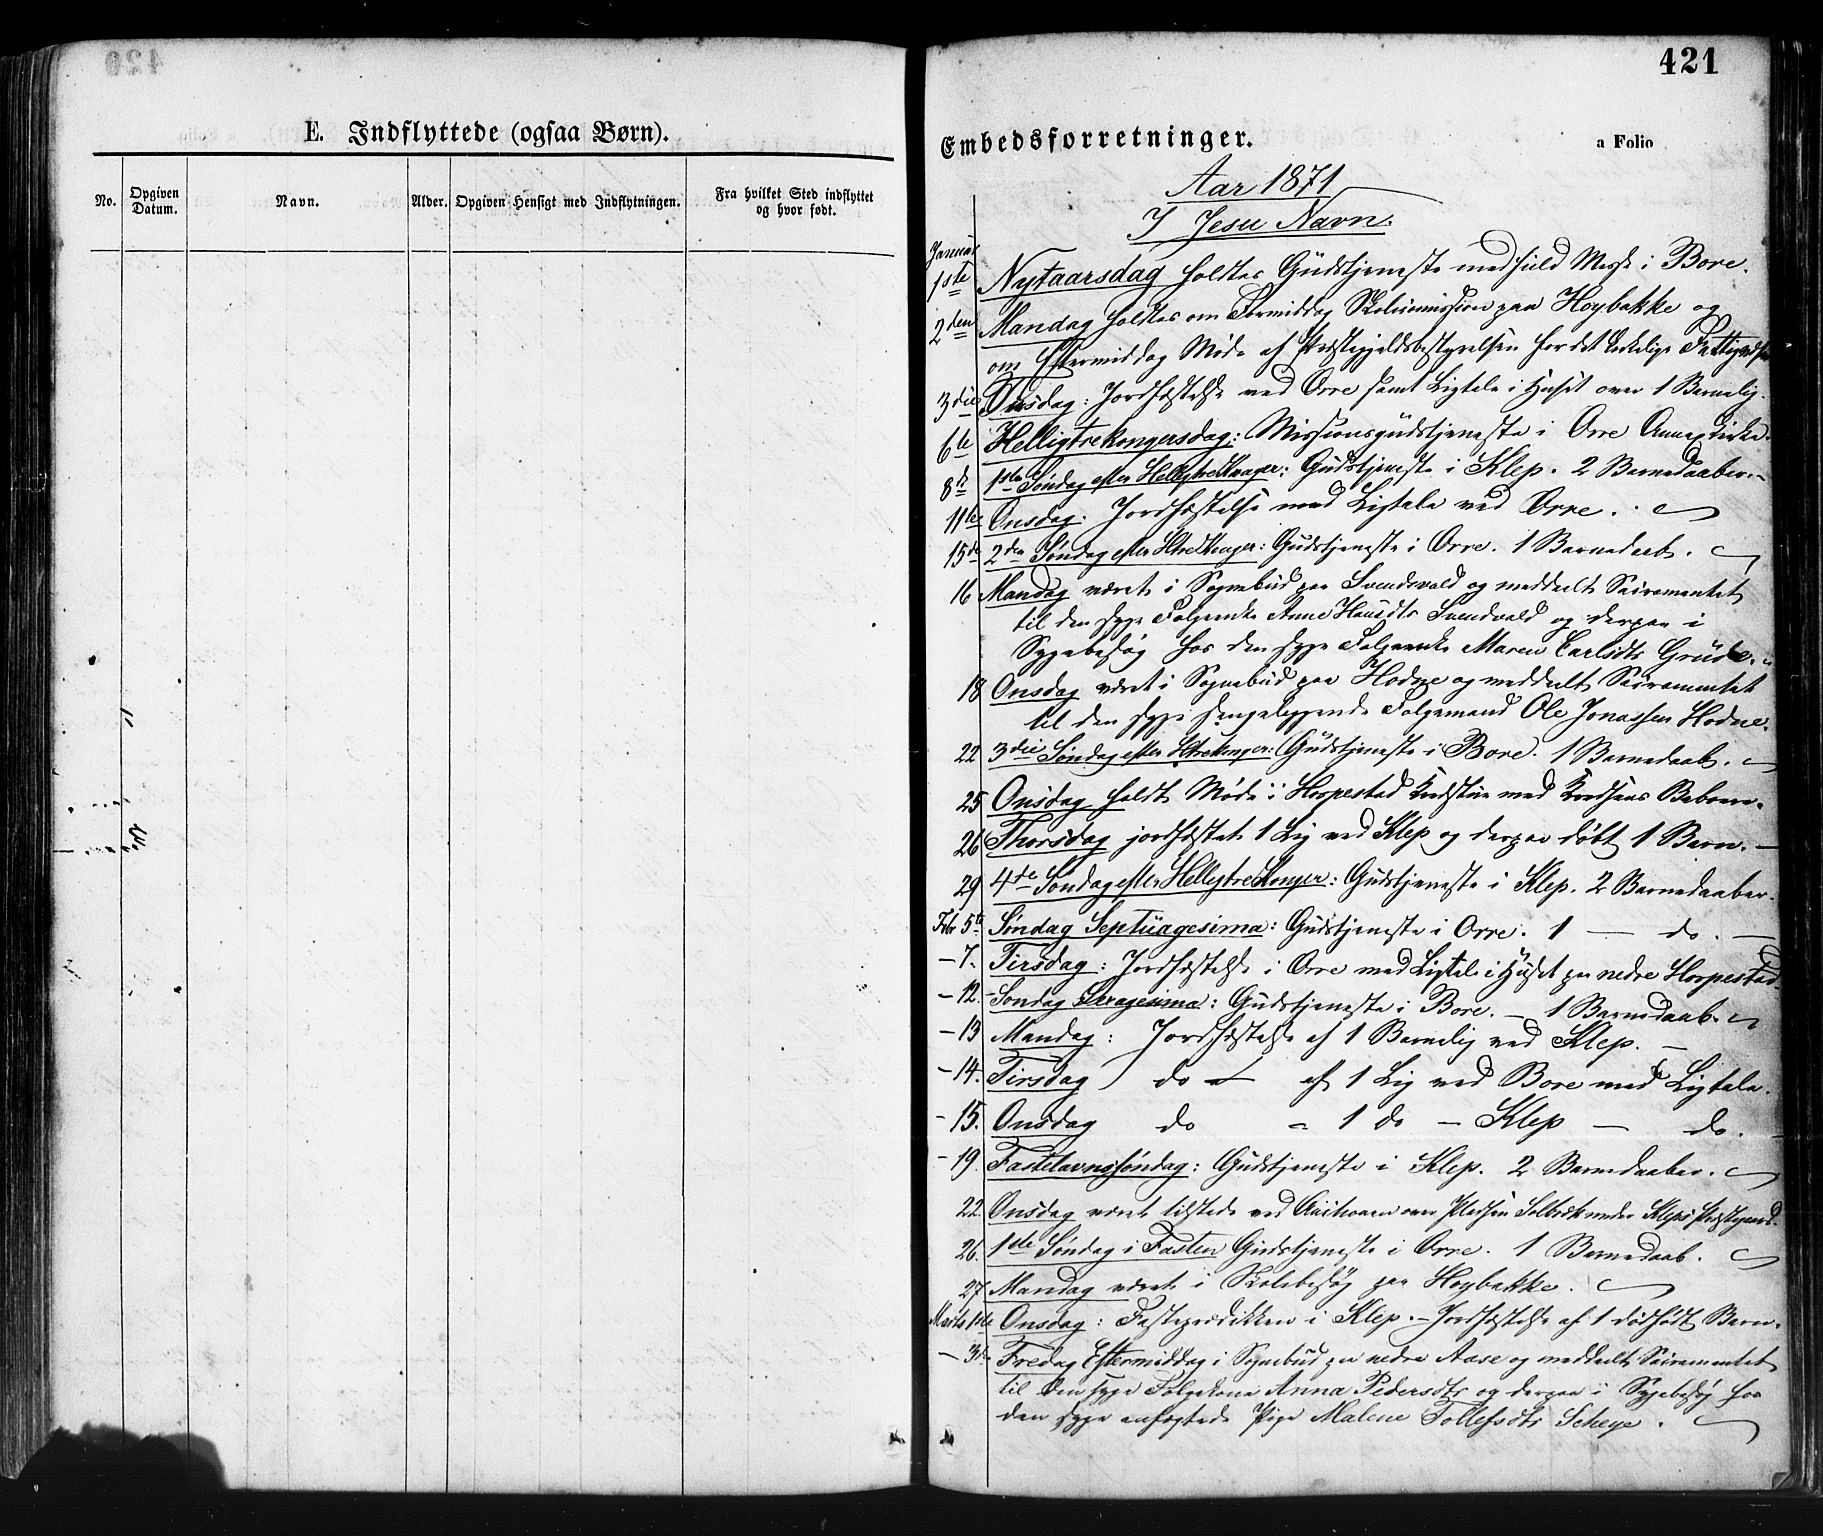 420
E. Indflyttede (ogsaa Børn).
No.
Opgiven Datum.
Navn.
Alder.
Opgiven Hensigt med Indflytningen.
Fra hvilket Sted indflyttet og hvor født.
421
Embedsforretninger.
a Folio
Aar 1871
I Jesu Navn.
Januar
1ste Nytaarsdag holdtes Gudstjeneste med fuld Messe i Bore.
2den Mandag holdtes om Formiddag Skolecommission paa Hoybakke og
om Eftermiddag Møde af Præstegjeldsbestyrelsen for det kirkelige
3die Tirsdag: Jordfæstelse ved Orre samt Ligtale i Huset over 1 Barnelig.
6te Helligtrekongersdag: Missionsgudstjeneste i Orre Annexkirke.
8de 1ste Søndag efter Helligtrekonger: Gudstjeneste i Klep. 2 Barnedaaber.
11te Onsdag. Jordfæstelse med Ligtale ved Orre.
15de 2den Søndag efter Hltrekonger: Gudstjeneste i Orre. 1 Barnedaab.
16 Mandag været i Sognebud paa Svendsvold og meddeelt Sacramentet
til den syge Folgeenke Anne Hansdtr Svendvold og derpaa i
Sygebesøg hos den syge Folgeenke Maren Carlsdtr Grude.
18 Onsdag været i Sognebud paa Hodne og meddeelt Sacramentet
til den syge sengeliggende Folgemand Ole Jonassen Hodne.
22 3die Søndag efter Hltrekonger: Gudstjeneste i Bore. 1 Barnedaab.
25 Onsdag holdt Møde i Horpestad Kredsstue med Kredsens Beboere.
26 Thorsdag jordfæstet 1 Lig ved Klep og derpaa døbt 1 Barn.
29 4de Søndag efter Helligtrekonger: Gudstjeneste i Klep. 2 Barnedaaber.
Febr 5te Søndag Septuagesima: Gudstjeneste i Orre. 1 — do.
— 7. Tirsdag: Jordfæstelse i Orre med Ligtale i Huset paa nedre Horpestad.
— 12. Søndag Sexagesima: Gudstjeneste i Bore. — 1 Barnedaab.
— 13 Mandag: Jordfæstelse af 1 Barnelig ved Klep. —
— 14. Tirsdag do af 1 Lig ved Bore med Ligtale.
— 15. Onsdag do " 1 do — Klep — do.
— 19. Fastelavnssøndag: Gudstjeneste i Klep. 2 Barnedaaber.
22. Onsdag været tilstede ved Auctionen over Pladsen Solbræk under Kleps Præstegaard.
26. 1ste Søndag i Fasten Gudstjeneste i Orre. 1 Barnedaab.
27 Mandag været i Skolebesøg paa Hoybakke.
Marts 1ste Onsdag: Fasteprædiken i Klep. — Jordfæstelse af 1 dødfødt Barn.
— 3die Fredag Eftermiddag i Sognebud paa nedre Aase og meddeelt Sacramentet
til den syge Folgekone Anna Pedersdtr og derpaa i Sygebesøg hos
den syge ensgtede Pige Malene Tollefsdtr Scheye.